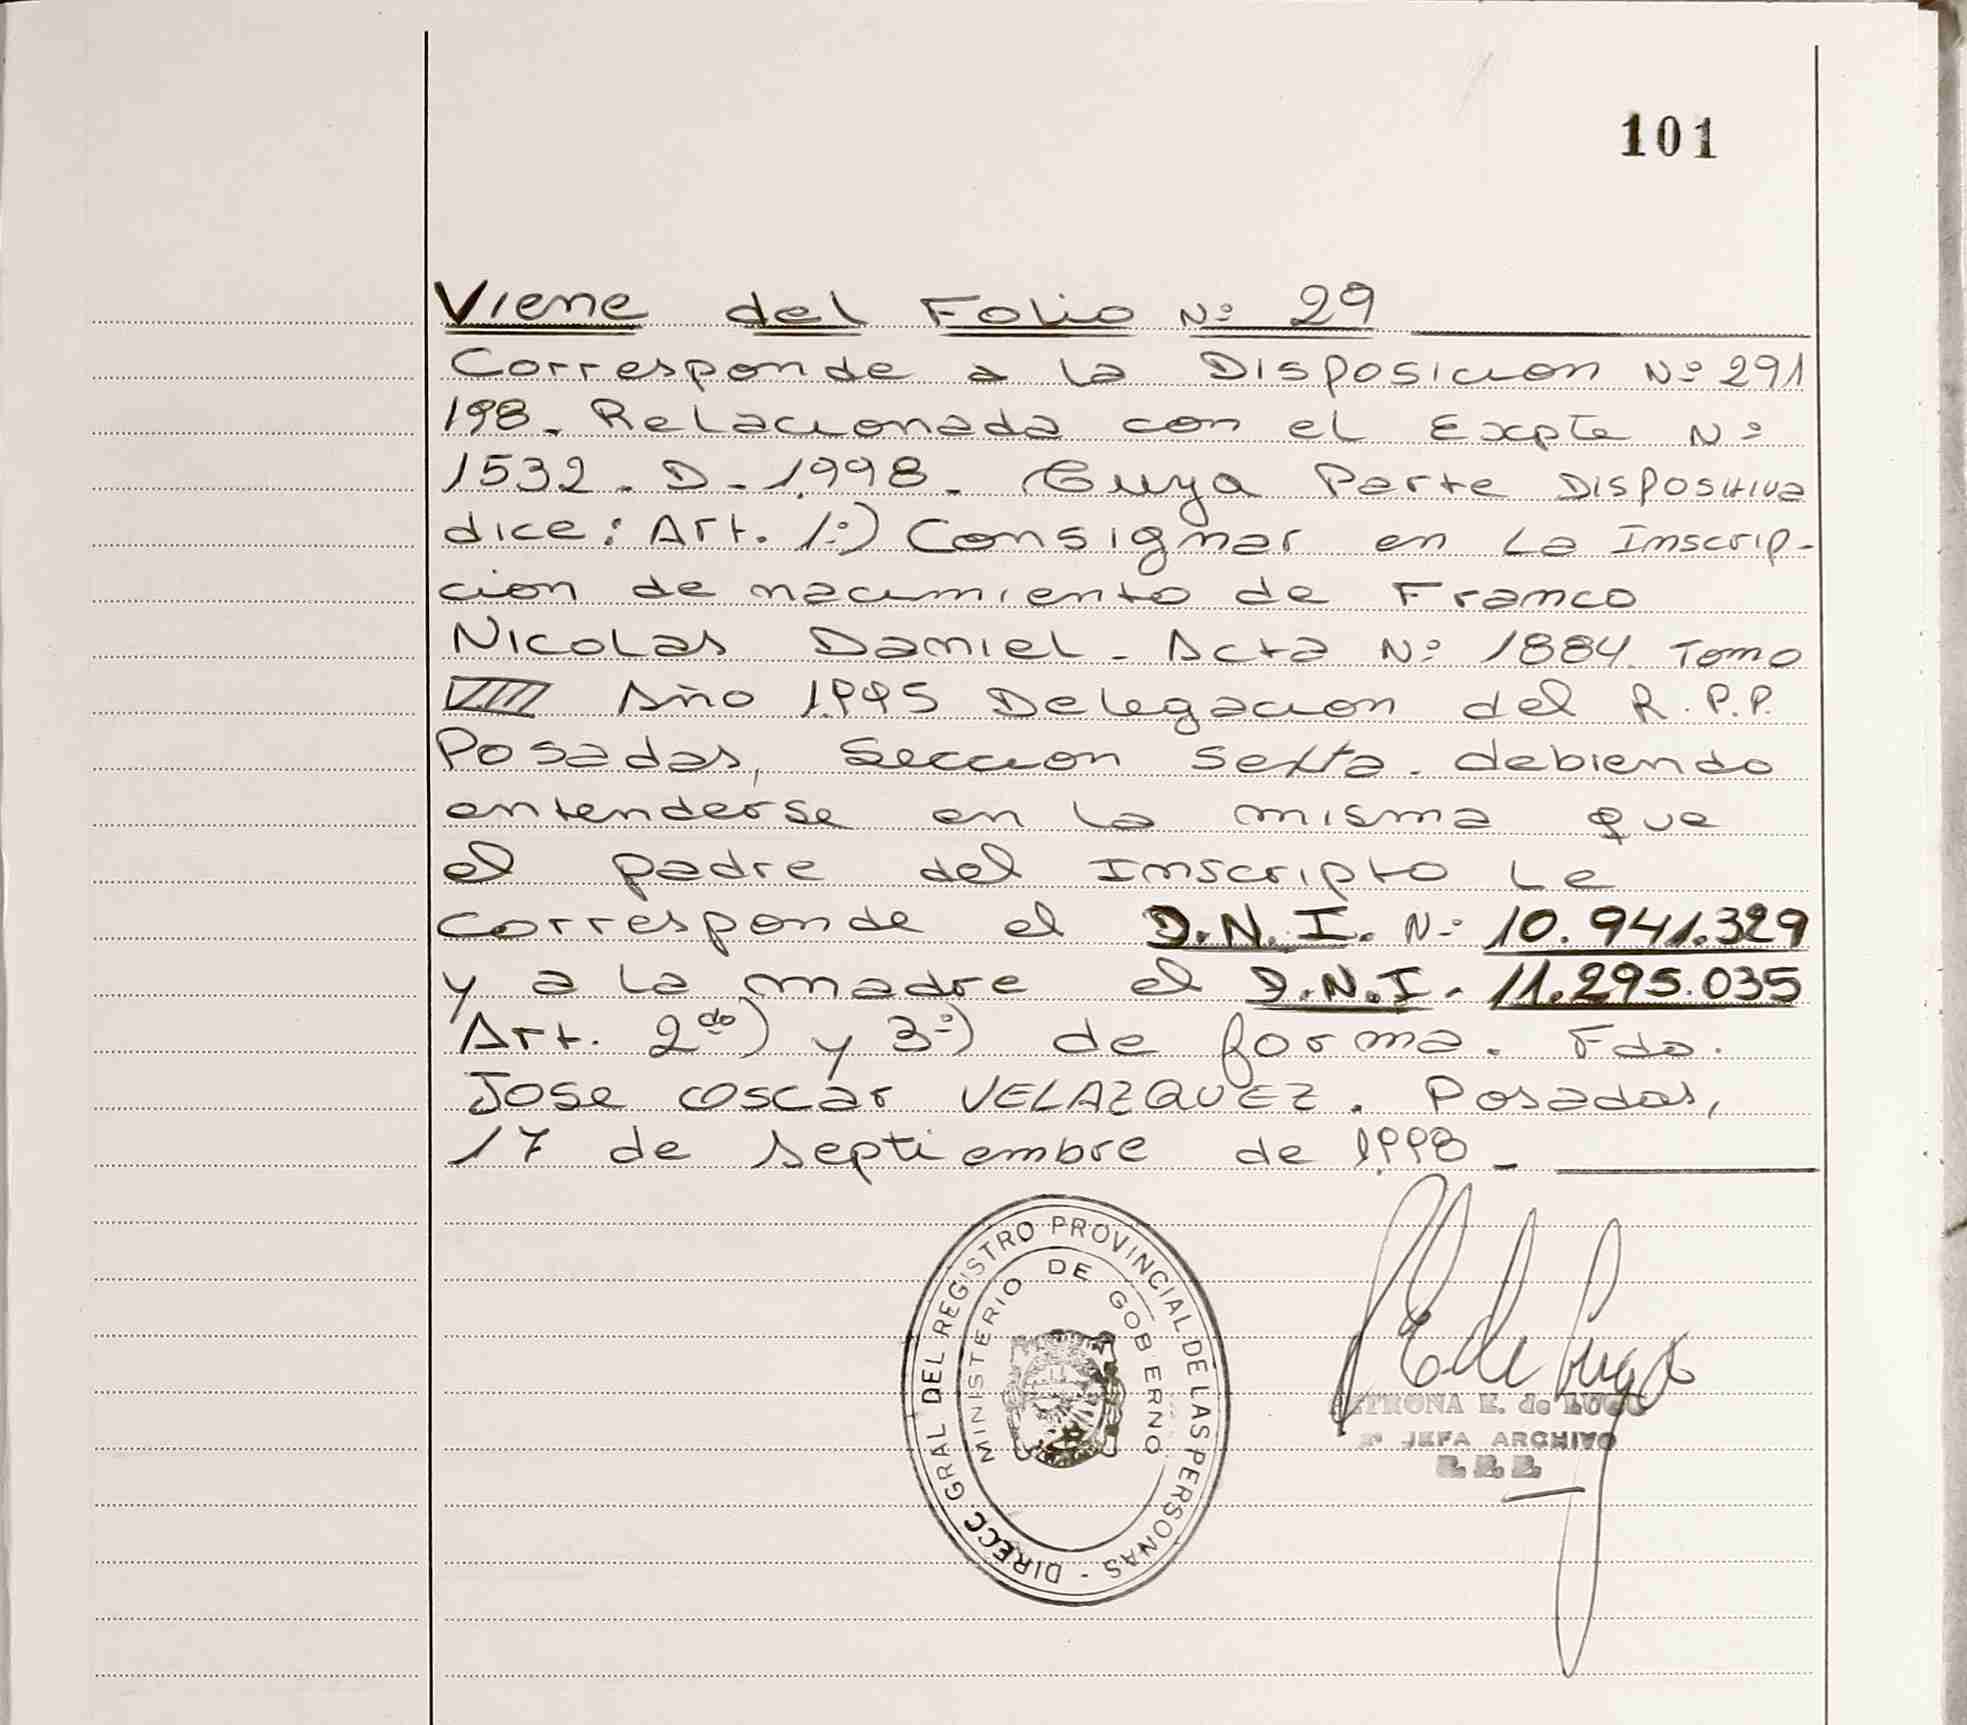 101
Viene del Folio Nº 29
Corresponde a la Disposicion Nº 291
198. Relacionada con el Expte Nº
1532. D. 1998. Cuya Parte Dispositiva
dice: Art. 1º) Consignar en La Inscrip-
cion de nacimiento de Franco
Nicolas Daniel. Acta Nº 1884. Tomo
VIII Año 1995 Delegacion del R.P.P.
Posadas, Seccion Sexta. debiendo
entenderse en la misma que
el padre del Inscripto Le
corresponde el D.N.I. Nº 10.941.329
y a la madre el D.N.I. 11.295.035
Art. 2do) y 3º) de forma. Fdo.
Jose Oscar VELAZQUEZ. Posadas,
17 de septiembre de 1998.
DIRECC GRAL DEL REGISTRO PROVINCIAL DE LAS PERSONAS -
MINISTERIO DE GOBIERNO
E. de LUGO
JEFA ARCHIVO